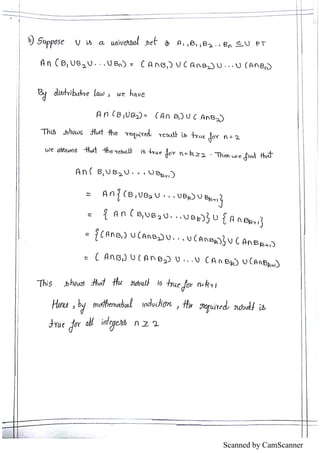 5) Suppose U is a universal set & A, B₁, B₂ .. Bn ⊆ U PT
A∩(B₁∪B₂∪...∪Bn) = (A∩B₁)∪(A∩B₂)∪...∪(A∩Bn)
By distributive law, we have
A∩(B₁∪B₂) = (A∩B₁)∪(A∩B₂)
This shows that the required result is true for n=2
we assume that the result is true for n=k≥2. Then we find that
A∩(B₁∪B₂∪...∪Bk+1)
= A∩{(B₁∪B₂∪...∪Bk)∪Bk+1}
= {A∩(B₁∪B₂∪...∪Bk)}∪{A∩Bk+1}
= {(A∩B₁)∪(A∩B₂)∪...∪(A∩Bk)}∪(A∩Bk+1)
= (A∩B₁)∪(A∩B₂)∪...∪(A∩Bk)∪(A∩Bk+1)
This shows that the result is true for n=k+1
Hence, by mathematical induction, the required result is
true for all integers n≥2
Scanned by CamScanner